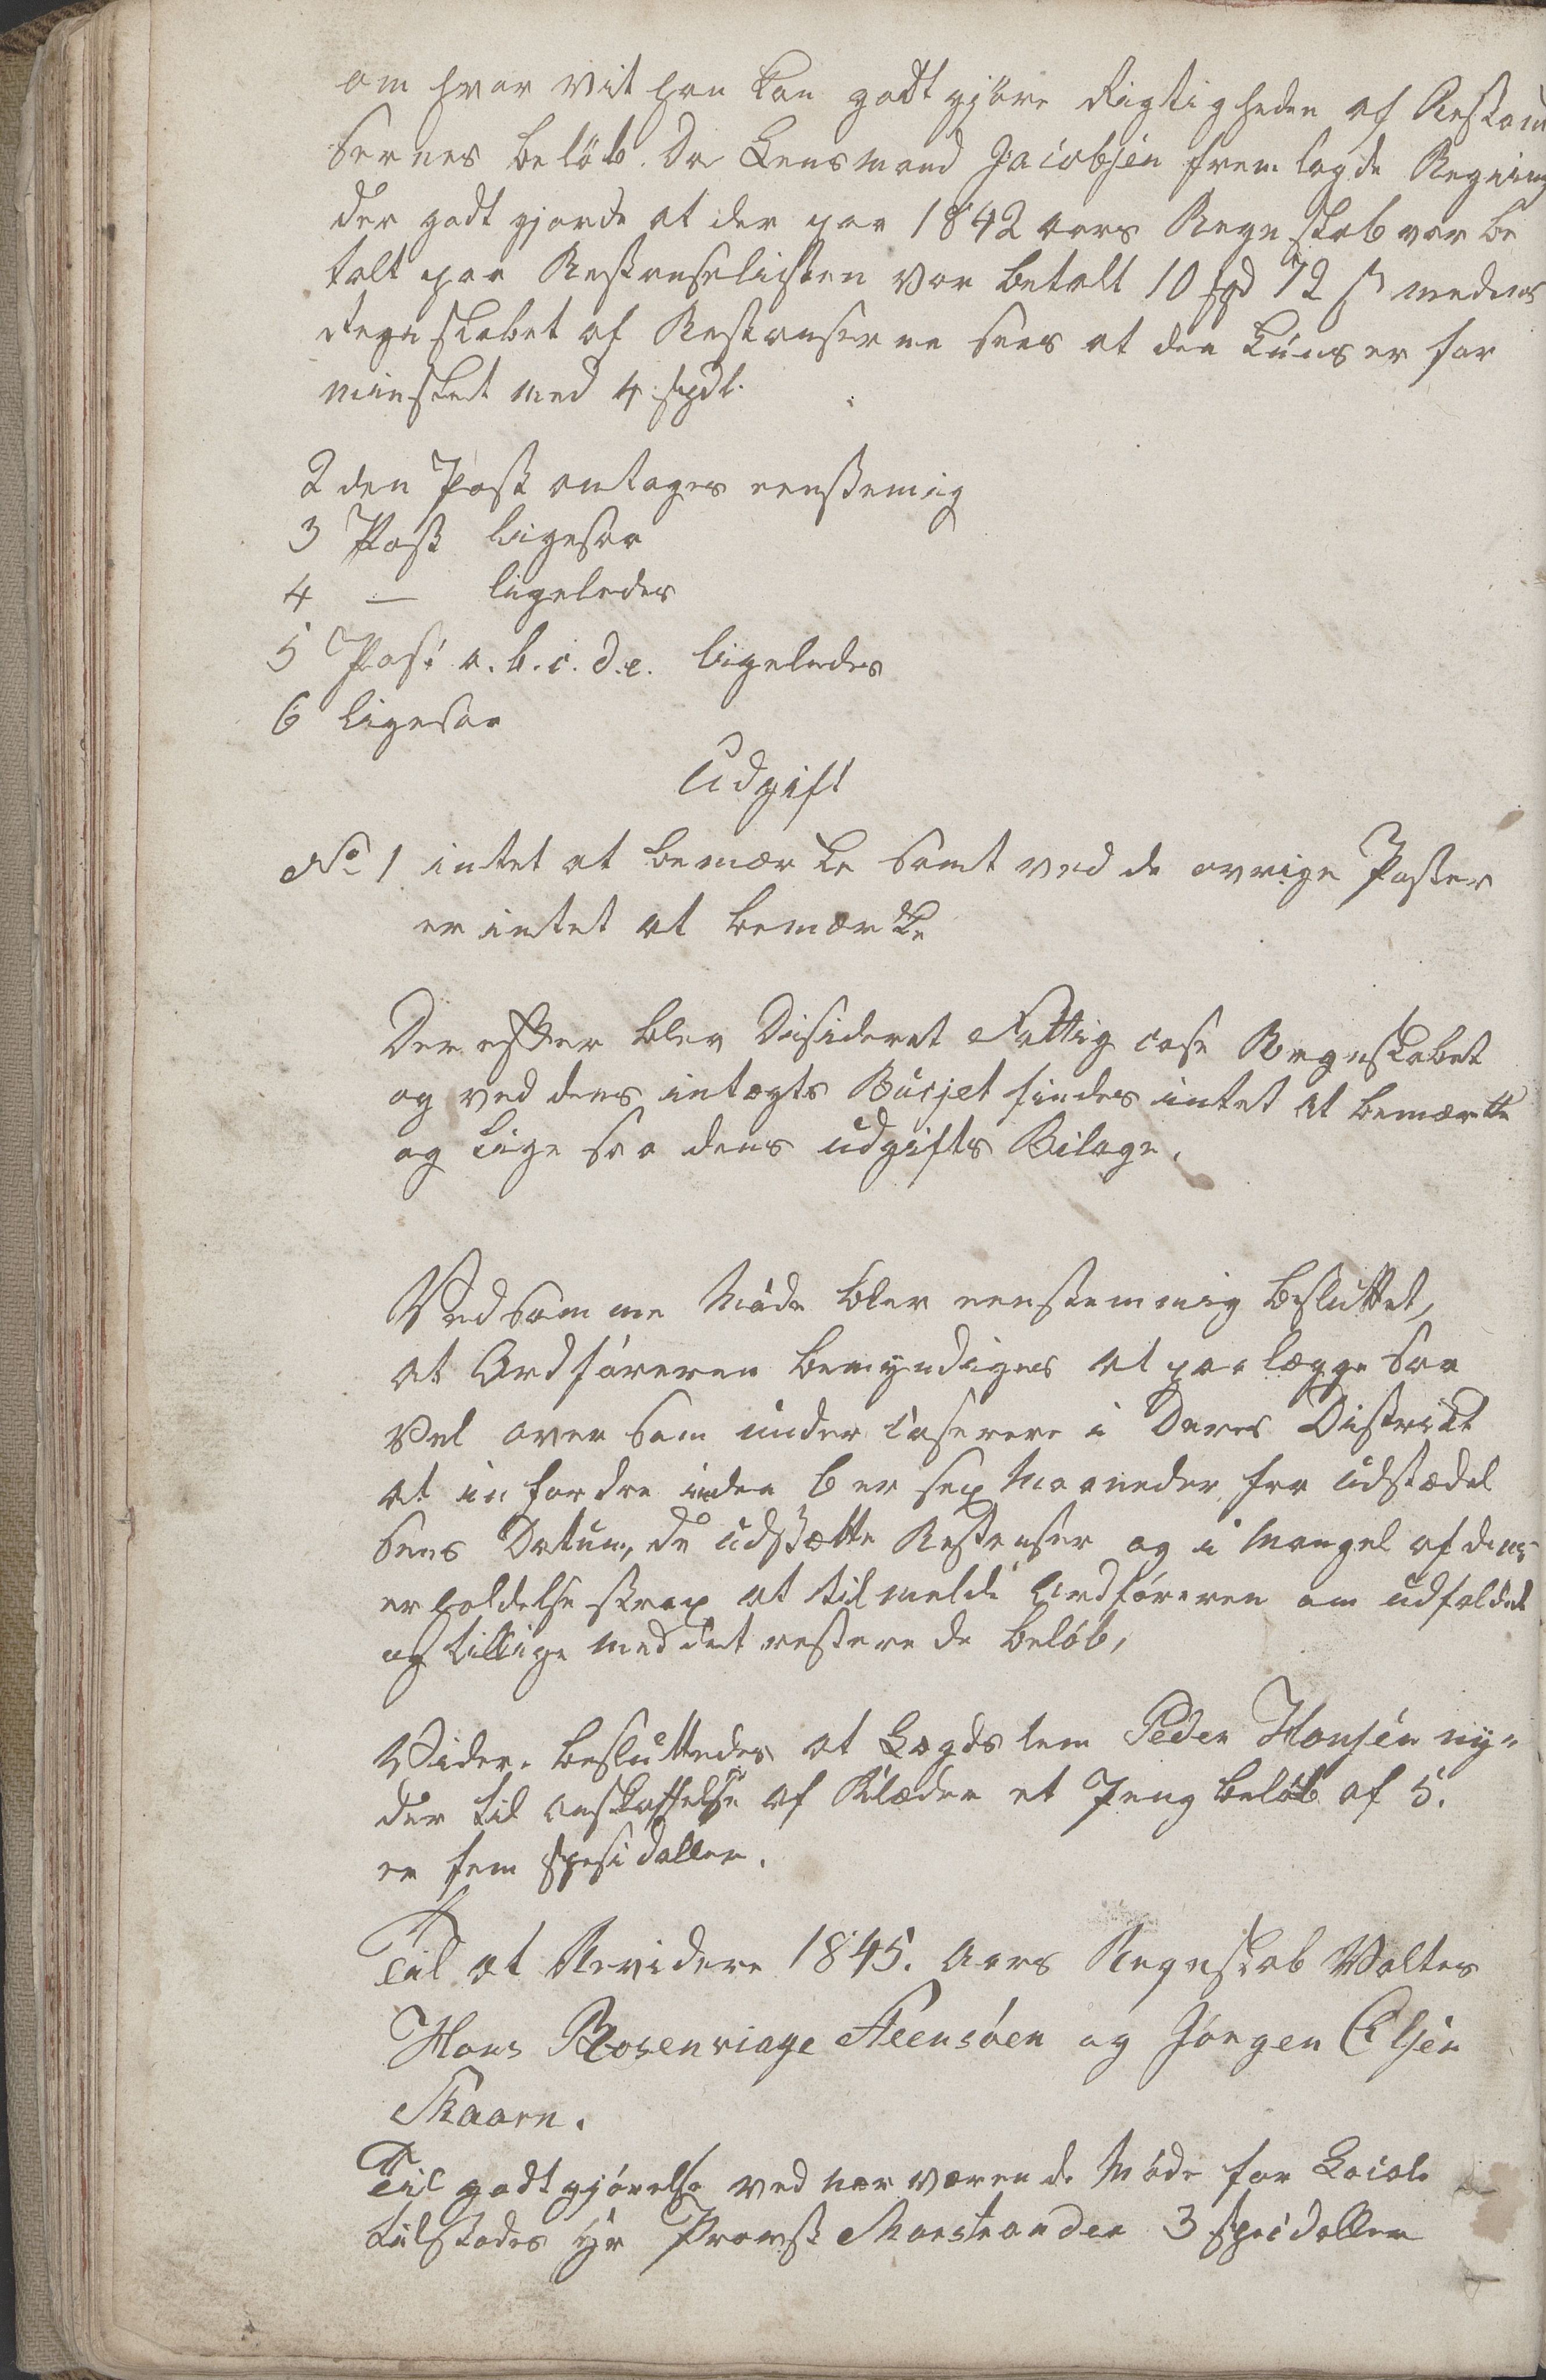 om hvor vit han kan godt gjöre Rigtigheden af Restand
sernes belöb. Da Lensmand Jacobsen fremlagde Regning
der godt gjorde at der paa 1842 aars Regnskab var be
talt paa Restanselisten var betalt 10 spd 72 s medens
Regnskabet af Restanserne sees at den kuns er for
minsket med 4 spdl.
2den Post antages eenstemig
3 Post ligesaa
4 — ligeledes
5 Post a. b. c. d. e. ligeledes
6 ligesaa
Udgift
No 1 intet at bemærke samt ved de ovrige Poster
er intet at bemærke
Derefter blev Desideret Fattig case Regnskabet
og ved dens intægts Busjet findes intet at bemærke
og lige saa dens udgifts Bilage.
Ved samme Möde blev eenstemmig besluttet,
at Ordföreren bemyndiges at paalægge saa
vel over som under caserere i Deres Distrikt
at infordre inden 6 er sex Maaneder fra Udstædel
sens Datum, de udsætte Restanser og i Mangel af dens
erholdelse strax at tilmelde Ordföreren om udfaldet
og tillige med det resterede belöb,
Videre besluttedes at Lægdslem Peder Hansen ny-
der til anskaffelse af Klæder et Peng belöb af 5.
er fem Spesidaller.
Til at Revidere 1845. Aars Regnskab Valtes
Hans Rosenviage Steensöen og Jörgen Elsen
Skaarn.
Til godtgjörelse ved nærværende Möde for Locale
tilstodes Hr Provst Marstrander 3 Spesidaller